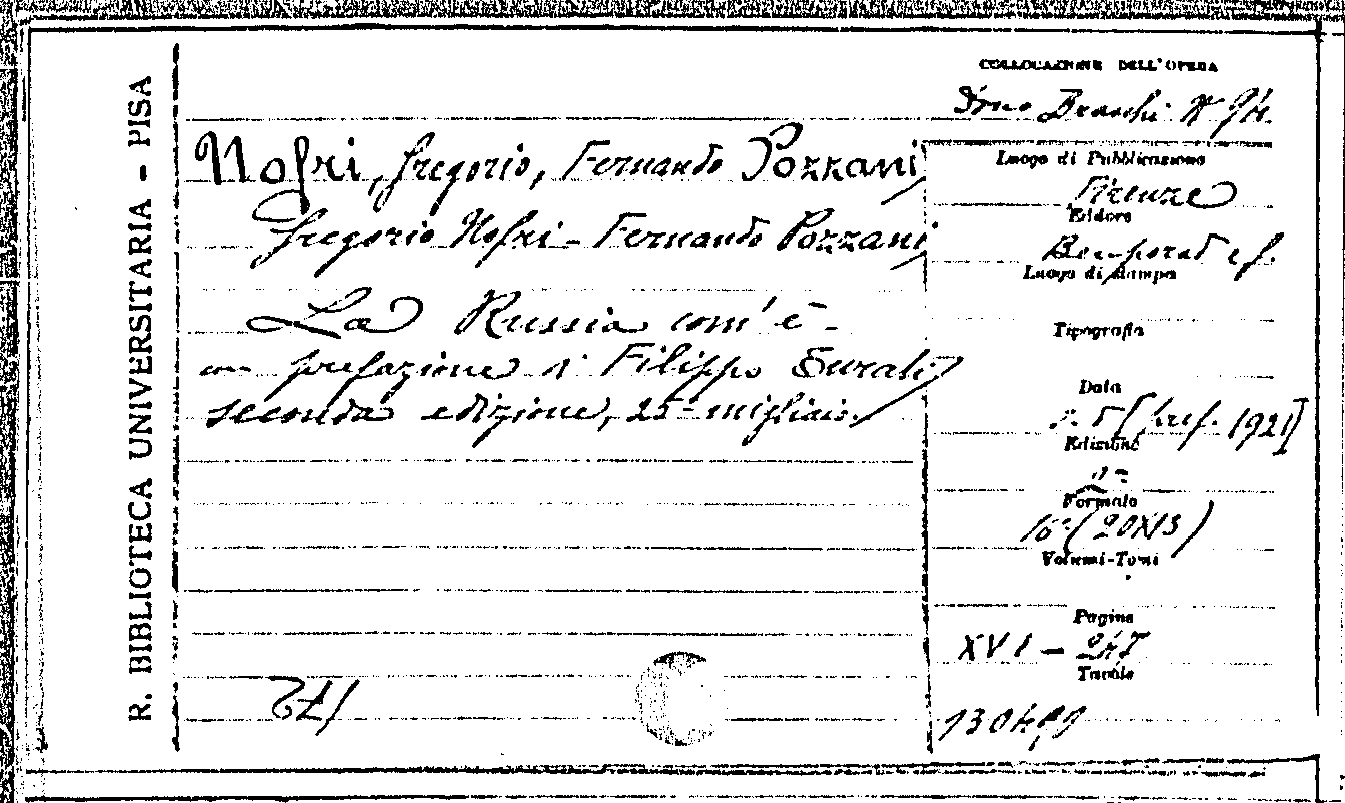 R. BIBLIOTECA UNIVERSITARIA - PISA
COLLOCAZIONE DELL'OPERA
Dono Braschi N 94.
Nofri, Gregorio, Fernando Pozzani
Luogo di Pubblicazione
Firenze
Editore
Gregorio Nofri - Fernando Pozzani
Bemporad e f.
Luogo di stampa
La Russia com'è -
Tipografia
con prefazione di Filippo Turati
Data
seconda edizione, 25° migliaio.
s. d. [pref. 1921]
Edizione
2ª
Formato
16° (20X13)
Volumi-Tomi
Pagine
XVI -
Tavole